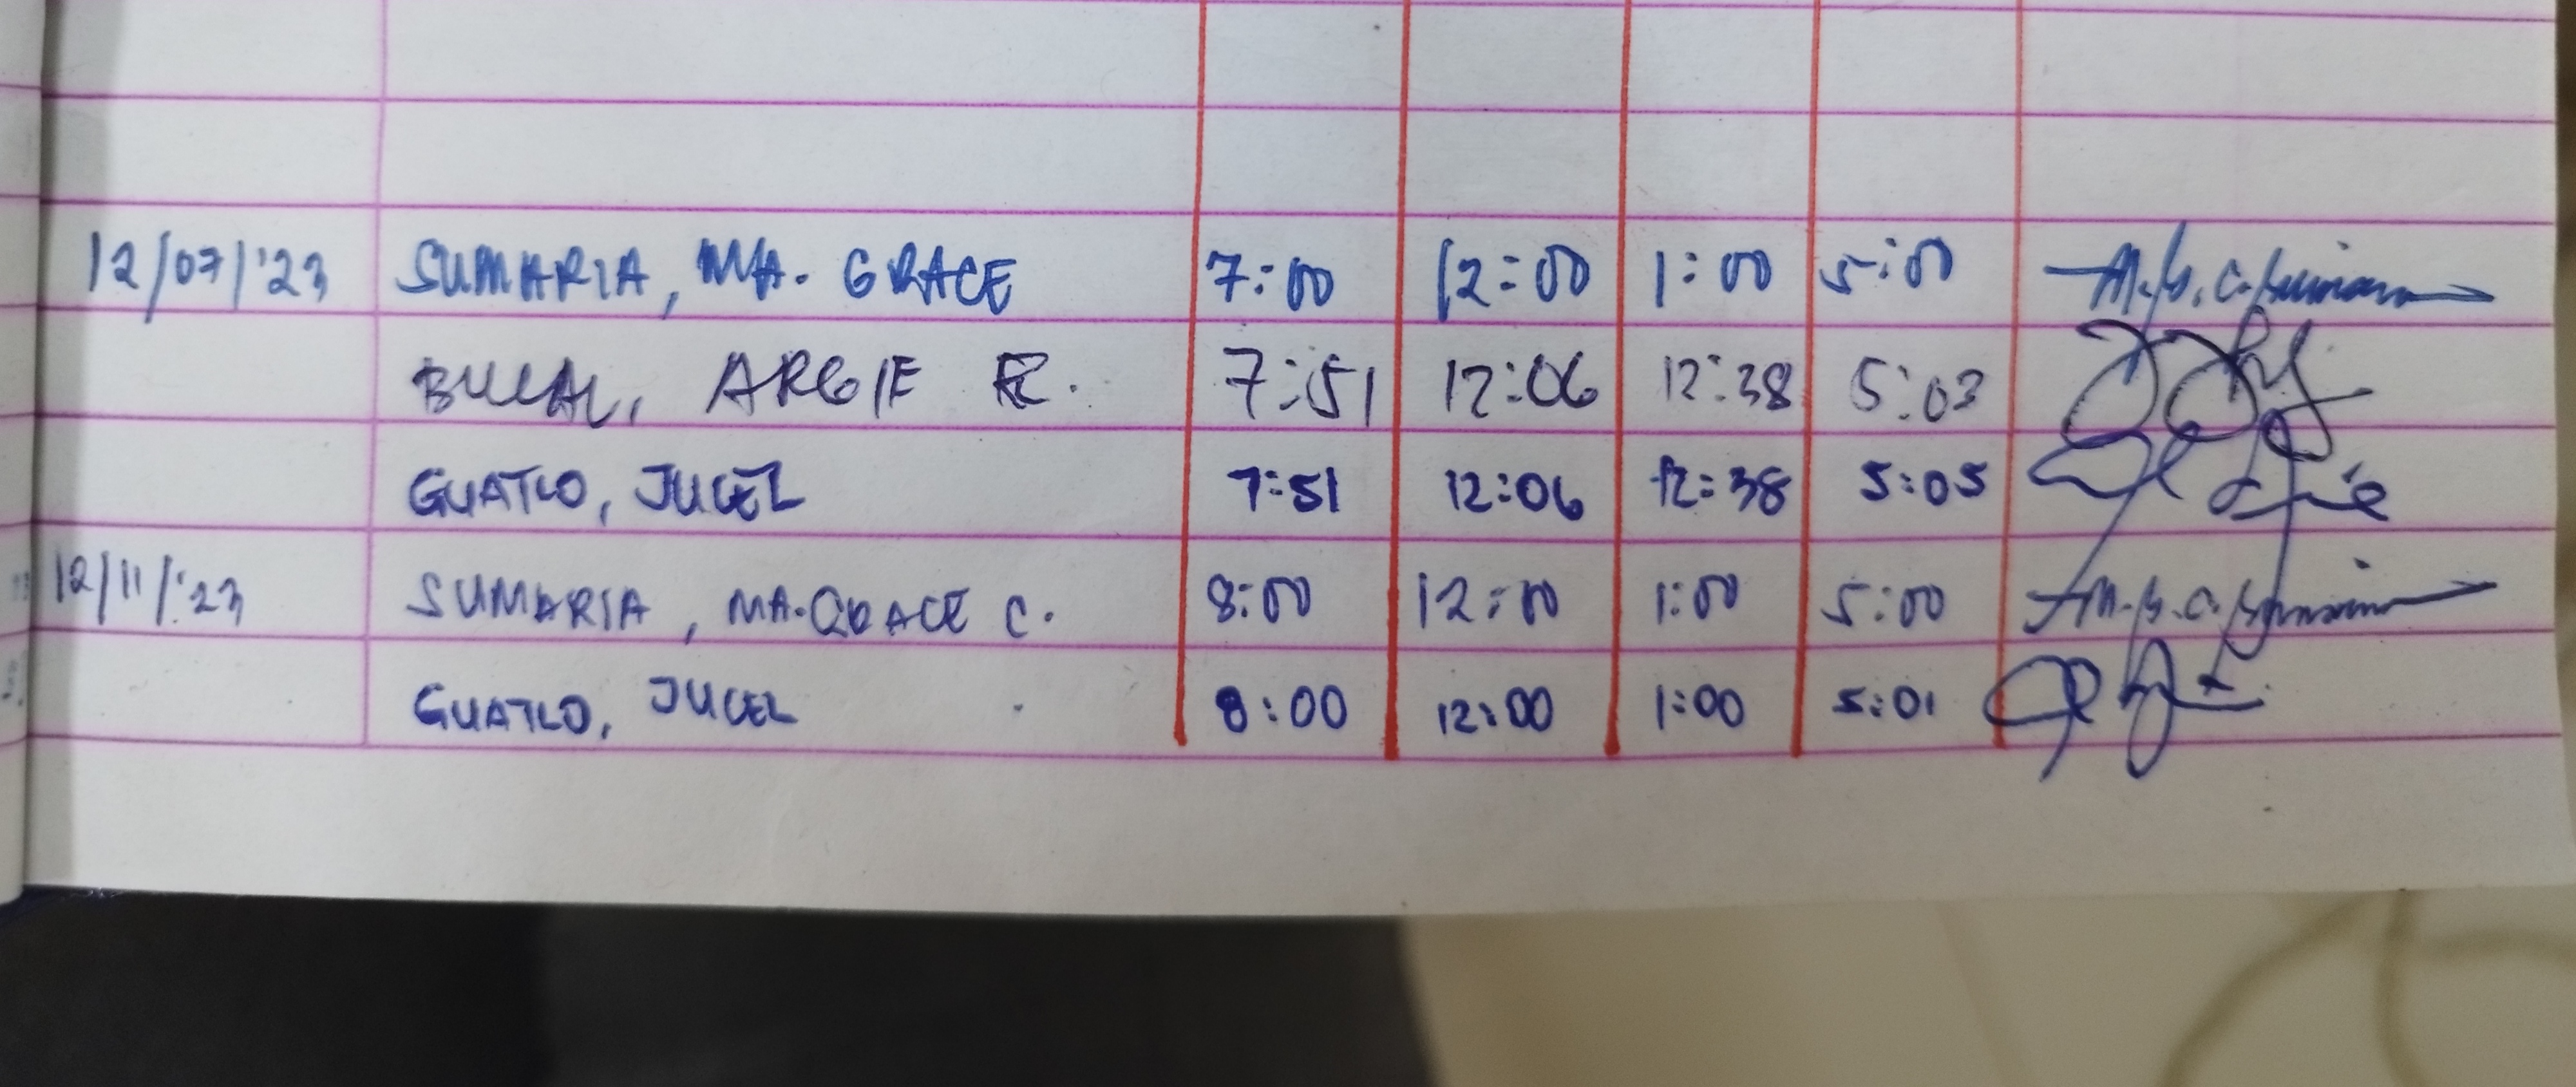 12/07/'23 SUMARIA, MA. GRACE 7:00 12:00 1:00 5:00
BUCAL, ARGIE R. 7:51 12:06 12:38 5:03
GUATLO, JUCEL 7:51 12:06 12:38 5:05
12/11/'23 SUMARIA, MA. GRACE C. 8:00 12:00 1:00 5:00
GUATLO, JUCEL 8:00 12:00 1:00 5:01